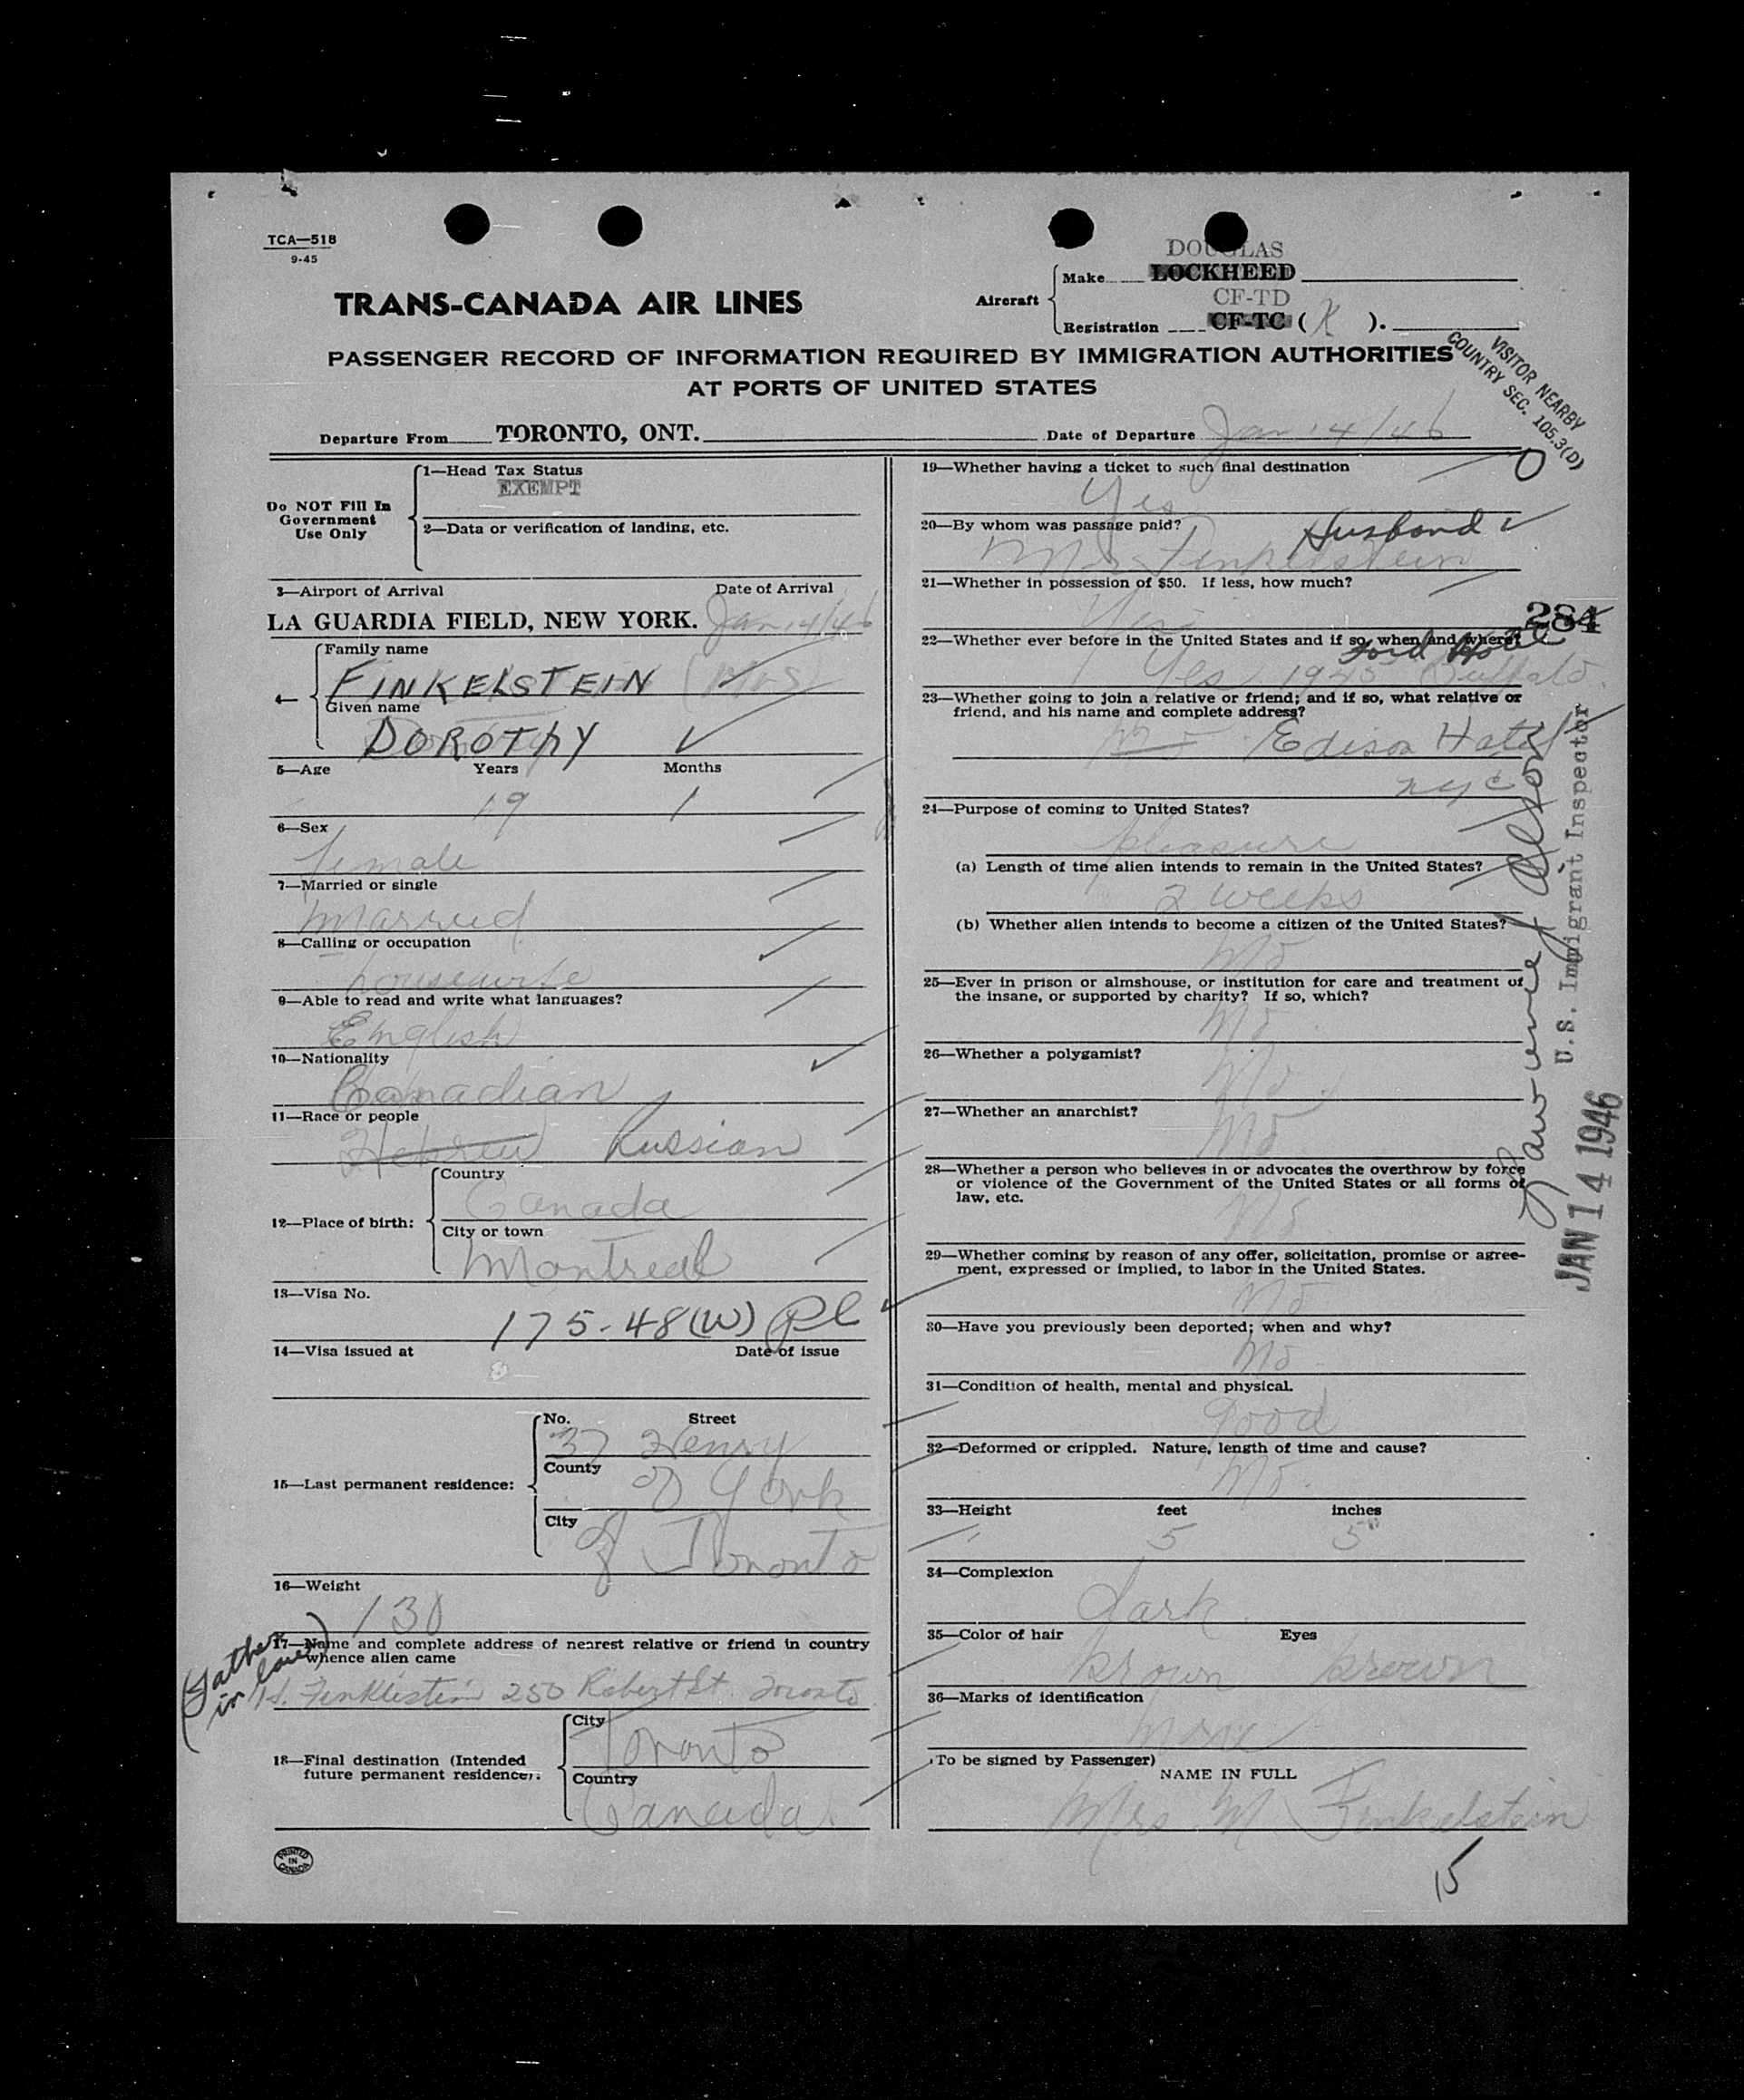 TCA—518
9-45
TRANS-CANADA AIR LINES
DOUGLAS
Aircraft
Make LOCKHEED
CF-TD
Registration CF-TC ( K ).
PASSENGER RECORD OF INFORMATION REQUIRED BY IMMIGRATION AUTHORITIES
AT PORTS OF UNITED STATES
VISITOR NEARBY
COUNTRY SEC. 105.3(D)
Departure From TORONTO, ONT.
Date of Departure Jan 14/46
Do NOT Fill In
Government
Use Only
1—Head Tax Status
EXEMPT
2—Data or verification of landing, etc.
3—Airport of Arrival Date of Arrival
LA GUARDIA FIELD, NEW YORK. Jan 14/46
4— Family name
FINKELSTEIN (Mrs)
Given name
DOROTHY
5—Age Years Months
19 1
6—Sex
female
7—Married or single
Married
8—Calling or occupation
housewife
9—Able to read and write what languages?
English
10—Nationality
Canadian
11—Race or people
Hebrew Russian
12—Place of birth:
Country
Canada
City or town
Montreal
13—Visa No.
175-48(W)
14—Visa issued at Date of issue
15—Last permanent residence:
No. Street
37 Henry
County
of York
City
of Toronto
16—Weight
130
17—Name and complete address of nearest relative or friend in country
whence alien came
(Father
in law)
Finklestein 250 Robert St. Toronto
18—Final destination (Intended
future permanent residence):
City
Toronto
Country
Canada
PRINTED
IN
CANADA
19—Whether having a ticket to such final destination
Yes
20—By whom was passage paid?
Husband
Mr Finkelstein
21—Whether in possession of $50. If less, how much?
Yes
284
22—Whether ever before in the United States and if so, when and where?
Ford Hotel
Yes 1945 Buffalo
23—Whether going to join a relative or friend; and if so, what relative or
friend, and his name and complete address?
No Edison Hotel
nyc
24—Purpose of coming to United States?
pleasure
(a) Length of time alien intends to remain in the United States?
2 weeks
(b) Whether alien intends to become a citizen of the United States?
No
25—Ever in prison or almshouse, or institution for care and treatment of
the insane, or supported by charity? If so, which?
No
26—Whether a polygamist?
No
27—Whether an anarchist?
No
28—Whether a person who believes in or advocates the overthrow by force
or violence of the Government of the United States or all forms of
law, etc.
No
29—Whether coming by reason of any offer, solicitation, promise or agree-
ment, expressed or implied, to labor in the United States.
No
30—Have you previously been deported; when and why?
No
31—Condition of health, mental and physical.
good
32—Deformed or crippled. Nature, length of time and cause?
No
33—Height feet inches
5 5"
34—Complexion
dark
35—Color of hair Eyes
brown brown
36—Marks of identification
none
(To be signed by Passenger)
NAME IN FULL
Mrs M Finkelstein
15
U.S. Immigrant Inspector
JAN 14 1946